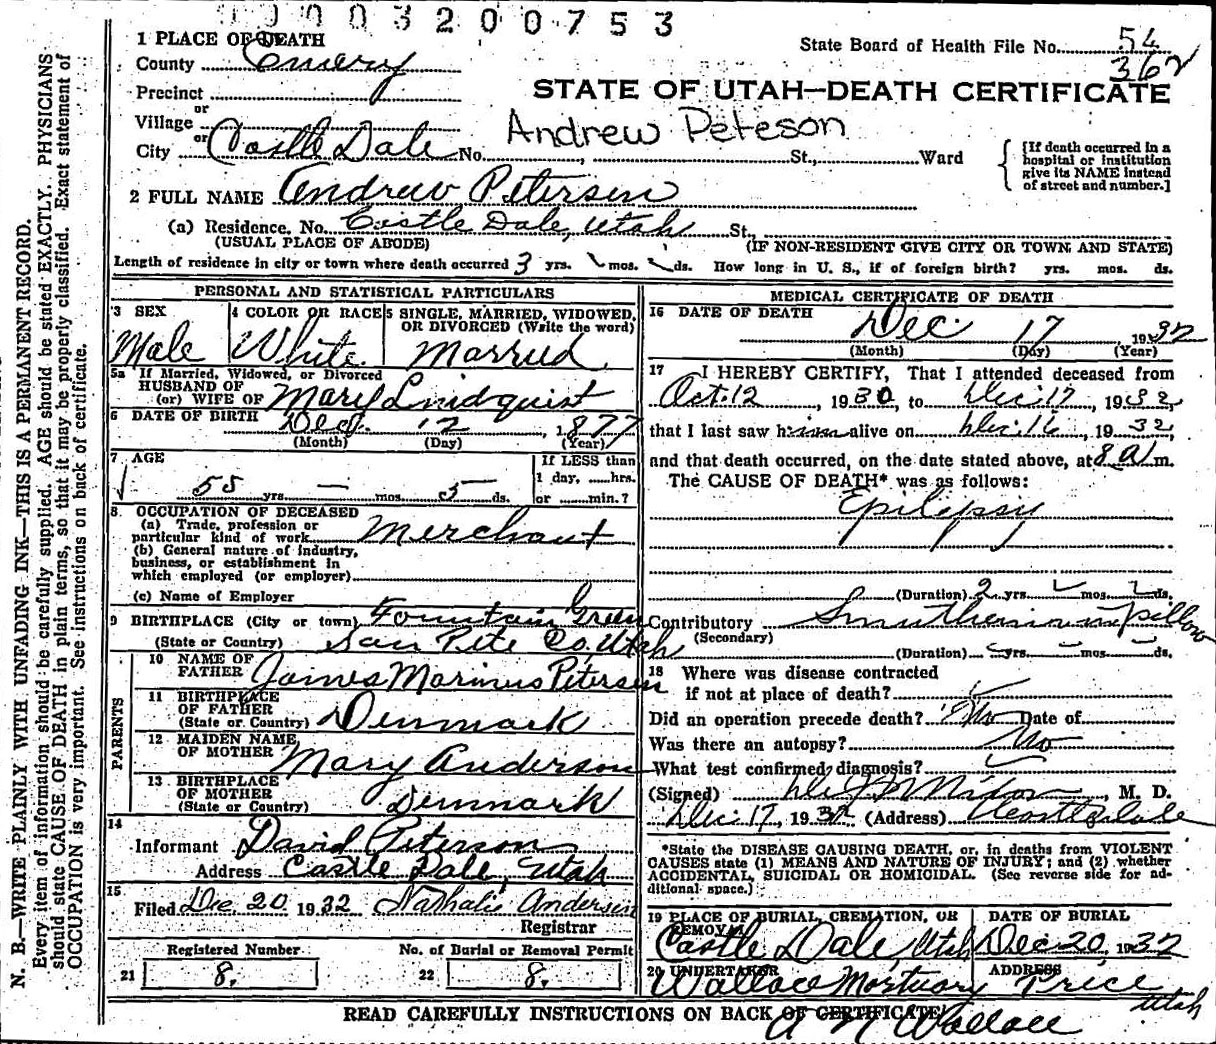 00003200753
1 PLACE OF DEATH
County Emery
State Board of Health File No. 54
362
Precinct
or
Village
or
City Castle Dale No. St., Ward
STATE OF UTAH—DEATH CERTIFICATE
Andrew Peteson
[If death occurred in a hospital or institution give its NAME instead of street and number.]
2 FULL NAME Andrew Petersen
(a) Residence. No. Castle Dale, Utah St.,
(USUAL PLACE OF ABODE) (IF NON-RESIDENT GIVE CITY OR TOWN AND STATE)
Length of residence in city or town where death occurred 3 yrs. mos. ds. How long in U. S., if of foreign birth? yrs. mos. ds.
PERSONAL AND STATISTICAL PARTICULARS
3 SEX
Male
4 COLOR OR RACE
White
5 SINGLE, MARRIED, WIDOWED, OR DIVORCED (Write the word)
Married
5a If Married, Widowed, or Divorced
HUSBAND OF
(or) WIFE OF Mary Lindquist
6 DATE OF BIRTH Dec. 12, 1877
(Month) (Day) (Year)
7 AGE
55 yrs. — mos. 5 ds.
If LESS than
1 day, hrs.
or min.?
8. OCCUPATION OF DECEASED
(a) Trade, profession or
particular kind of work Merchant
(b) General nature of industry,
business, or establishment in
which employed (or employer)
(c) Name of Employer
9 BIRTHPLACE (City or town) Fountain Green
(State or Country) San Pete Co, Utah
PARENTS
10 NAME OF
FATHER James Marinus Petersen
11 BIRTHPLACE
OF FATHER
(State or Country) Denmark
12 MAIDEN NAME
OF MOTHER Mary Anderson
13 BIRTHPLACE
OF MOTHER
(State or Country) Denmark
14
Informant David Peterson
Address Castle Dale, Utah
15
Filed Dec. 20 1932 Nathalie Andersen
Registrar
Registered Number No. of Burial or Removal Permit
21 8. 22 8.
MEDICAL CERTIFICATE OF DEATH
16 DATE OF DEATH
Dec 17 1932
(Month) (Day) (Year)
17 I HEREBY CERTIFY, That I attended deceased from
Oct. 12, 1930, to Dec. 17, 1932,
that I last saw him alive on Dec. 16, 1932,
and that death occurred, on the date stated above, at 8 A m.
The CAUSE OF DEATH* was as follows:
Epilepsy
(Duration) 2 yrs. mos. ds.
Contributory Smuthern in pillow
(Secondary)
(Duration) yrs. mos. ds.
18 Where was disease contracted
if not at place of death?
Did an operation precede death? No Date of
Was there an autopsy? No
What test confirmed diagnosis?
(Signed) Nixon, M. D.
Dec. 17, 1932 (Address) Castledale
*State the DISEASE CAUSING DEATH, or, in deaths from VIOLENT
CAUSES state (1) MEANS AND NATURE OF INJURY; and (2) whether
ACCIDENTAL, SUICIDAL OR HOMICIDAL. (See reverse side for ad-
ditional space.)
19 PLACE OF BURIAL, CREMATION, OR REMOVAL DATE OF BURIAL
Castle Dale, Utah Dec 20, 1932
20 UNDERTAKER ADDRESS
Wallace Mortuary Price
Utah
A N Wallace
READ CAREFULLY INSTRUCTIONS ON BACK OF CERTIFICATE
N. B.—WRITE PLAINLY WITH UNFADING INK—THIS IS A PERMANENT RECORD.
Every item of information should be carefully supplied. AGE should be stated EXACTLY. PHYSICIANS
should state CAUSE OF DEATH in plain terms, so that it may be properly classified. Exact statement of
OCCUPATION is very important. See instructions on back of certificate.